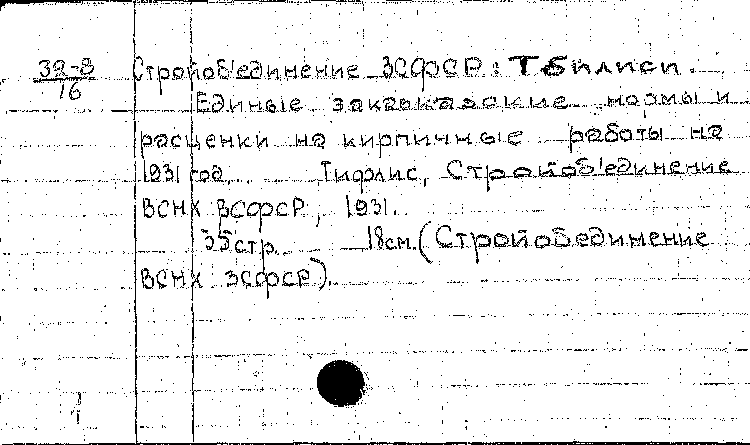 32-8
16
Стройоб'единение ЗСФСР: Тбилиси.
Единые закавказские нормы и
расценки на кирпичные работы на
1931 год. Тифлис, Стройоб'единение
ВСНХ ЗСФСР, 1931.
35 стр. 18 см. (Стройобединение
ВСНХ ЗСФСР).